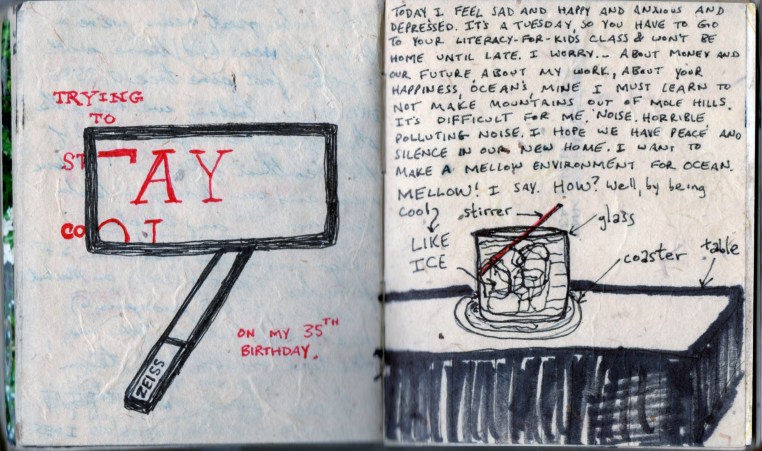 TRYING
TO
STAY
COOL
ZEISS
ON MY 35TH
BIRTHDAY.
TODAY I FEEL SAD AND HAPPY AND ANXIOUS AND
DEPRESSED. IT'S A TUESDAY, SO YOU HAVE TO GO
TO YOUR LITERACY-FOR-KIDS CLASS & WON'T BE
HOME UNTIL LATE. I WORRY... ABOUT MONEY AND
OUR FUTURE, ABOUT MY WORK, ABOUT YOUR
HAPPINESS, OCEAN'S, MINE. I MUST LEARN TO
NOT MAKE MOUNTAINS OUT OF MOLE HILLS.
IT'S DIFFICULT FOR ME. NOISE. HORRIBLE
POLLUTING NOISE. I HOPE WE HAVE PEACE AND
SILENCE IN OUR NEW HOME. I WANT TO
MAKE A MELLOW ENVIRONMENT FOR OCEAN.
MELLOW! I SAY. HOW? Well, by being
cool
LIKE
ICE
stirrer
glass
coaster
table